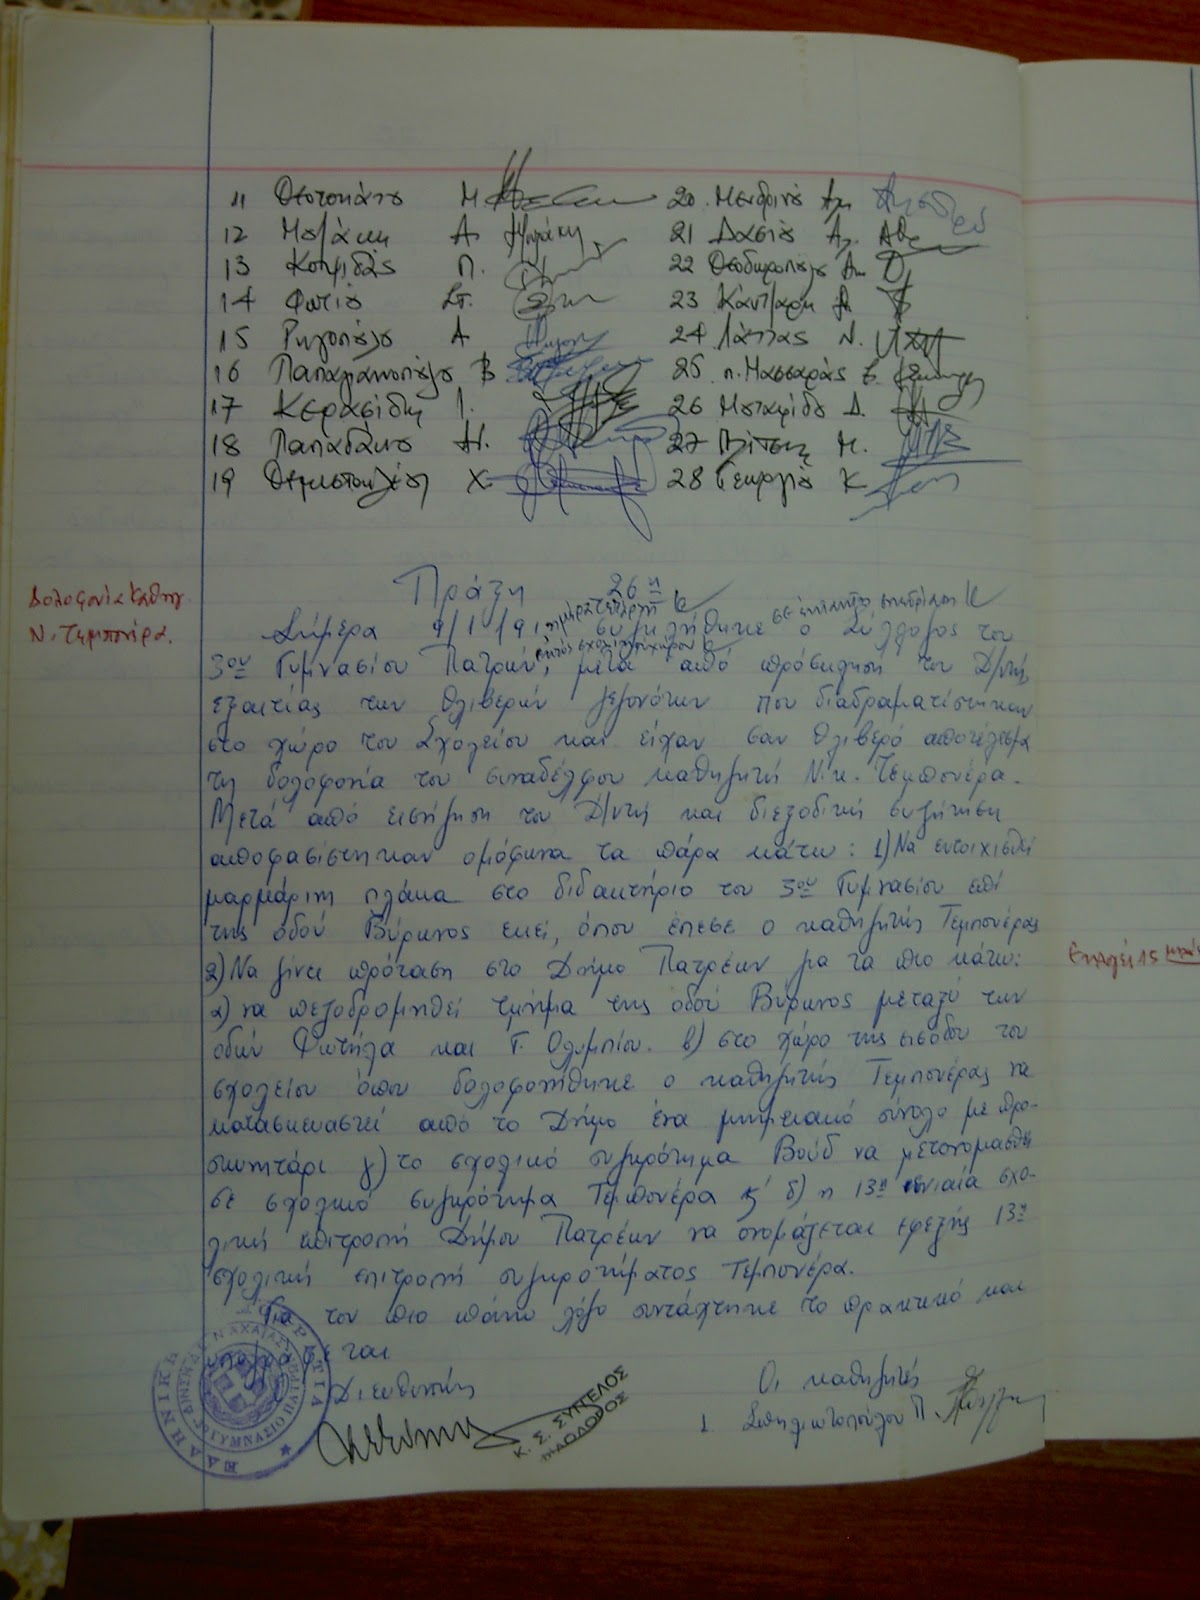 11 Θεοτοκάτου Μ.
12 Μπάκη Α.
13 Κομιδάς Π.
14 Φωτίου Σπ.
15 Ρηγοπούλου Α
16 Παπαγιαννοπούλου Β
17 Κερασίδη Ι.
18 Παπαδάκου Η.
19 Θεμιστοκλέους Χ.
20. Μενδρινού Αγγ
21 Δασίου Αγ.
22 Θεοδωροπούλου Αικ
23 Κάντζαρη Α.
24 Λάππας Ν.
25 π. Μασσαράς Ε.
26 Μπαφίδου Δ.
27 Πλίτση Μ.
28 Γεωργίου Κ
Δολοφονία Καθηγ.
Ν. Τεμπονέρα.
Πράξη 26η
Σήμερα 9/1/91, ημέρα Τετάρτη συγκλήθηκε σε έκτακτη συνεδρίαση ο Σύλλογος του
3ου Γυμνασίου Πατρών, εκτός σχολικού χώρου μετά από πρόσκληση του Δ/ντή,
εξαιτίας των θλιβερών γεγονότων που διαδραματίστηκαν
στο χώρο του Σχολείου και είχαν σαν θλιβερό αποτέλεσμα
τη δολοφονία του συναδέλφου καθηγητή Νικ. Τεμπονέρα.
Μετά από εισήγηση του Δ/ντή και διεξοδική συζήτηση
αποφασίστηκαν ομόφωνα τα πάρα κάτω: 1) Να εντοιχισθεί
μαρμάρινη πλάκα στο διδακτήριο του 3ου Γυμνασίου επί
της οδού Βύρωνος εκεί, όπου έπεσε ο καθηγητής Τεμπονέρας
2) Να γίνει πρόταση στο Δήμο Πατρέων για τα πιο κάτω:
α) να πεζοδρομηθεί τμήμα της οδού Βύρωνος μεταξύ των
οδών Φωτήλα και Γ. Ολυμπίου. β) στο χώρο της εισόδου του
σχολείου όπου δολοφονήθηκε ο καθηγητής Τεμπονέρας να
κατασκευαστεί από το Δήμο ένα μνημειακό σύνολο με προ-
σκυνητάρι γ) το σχολικό συγκρότημα Βούδ να μετονομασθεί
σε σχολικό συγκρότημα Τεμπονέρα ϗ δ) η 13η ενιαία σχο-
λική επιτροπή Δήμου Πατρέων να ονομάζεται εφεξής 13η
σχολική επιτροπή συγκροτήματος Τεμπονέρα.
Για τον πιο πάνω λόγο συντάχτηκε το πρακτικό και
υπογράφεται
Διευθυντής
Οι καθηγητές
1. Σπηλιωτοπούλου Π.
Κ. Σ. ΣΥΓΓΕΛΟΣ
ΕΛΛΗΝΙΚΗ ΔΗΜΟΚΡΑΤΙΑ
ΓΥΜΝΑΣΙΟ